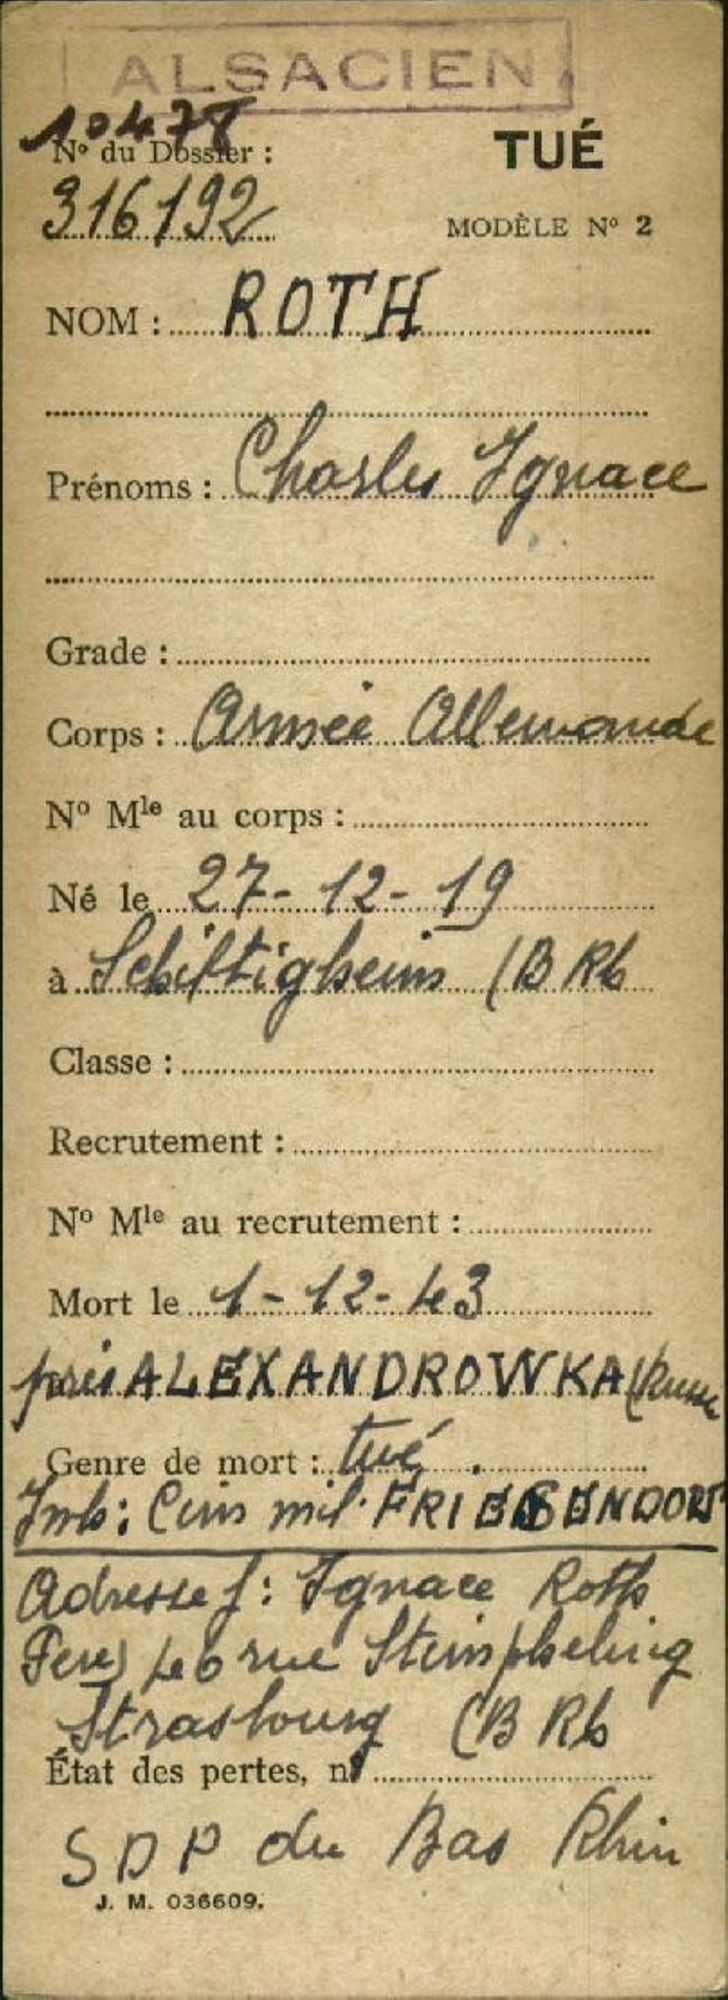 ALSACIEN
10478
N° du Dossier :
TUÉ
316192
MODÈLE N° 2
NOM : ROTH
Prénoms : Charles Ignace
Grade :
Corps : Armée Allemande
N° Mle au corps :
Né le 27-12-19
à Schiltigheim (B Rh
Classe :
Recrutement :
N° Mle au recrutement :
Mort le 1-12-43
près ALEXANDROWKA (Russie
Genre de mort : tué
Inh: Cim mil. FRIEDENDORF
Adresse f: Ignace Roth
Père) 46 rue
Strasbourg (B Rh
État des pertes, n°
SDP du Bas Rhin
J. M. 036609.